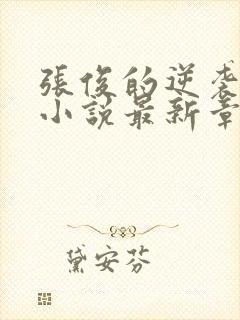 張俊的逆袭
小説最新章
黛安芬